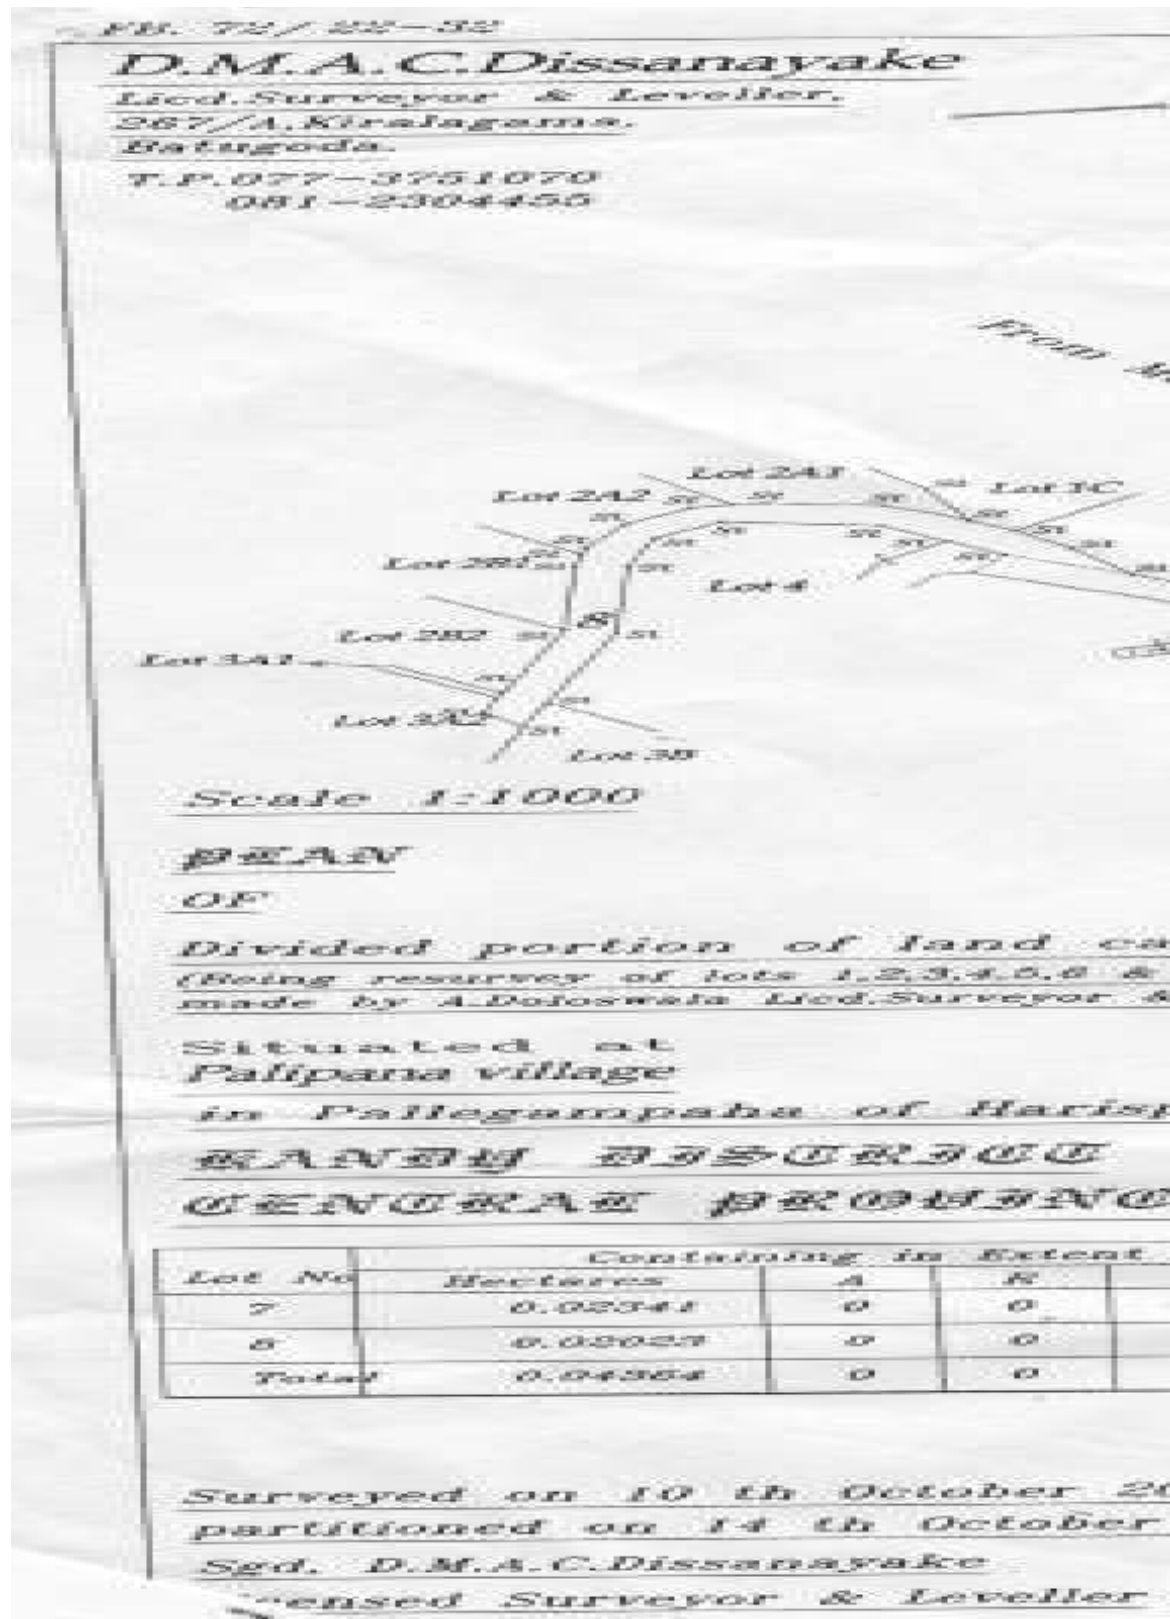 FB. 72/22-32
D.M.A.C.Dissanayake
Licd.Surveyor & Leveller.
267/A,Kiralagama.
Batugoda.
T.P.077-3751070
081-2304455
From
Lot 2A3
Lot 3C
Lot 2A2
Lot 2B1
Lot 4
Lot 2B2
Lot 3A1
Lot 3A2
Lot 3B
Scale 1:1000
PLAN
OF
Divided portion of land ca
(Being resurvey of lots 1,2,3,4,5,6 &
made by A.Doloswala Licd.Surveyor &
Situated at
Palipana village
in Pallegampaha of Harisp
KANDY DISTRICT
CENTRAL PROVINC
Containing in Extent
Lot No Hectares A R
7 0.02341 0 0
6 0.02023 0 0
Total 0.04364 0 0
Surveyed on 10 th October 20
partitioned on 14 th October
Sgd. D.M.A.C.Dissanayake
ensed Surveyor & Leveller